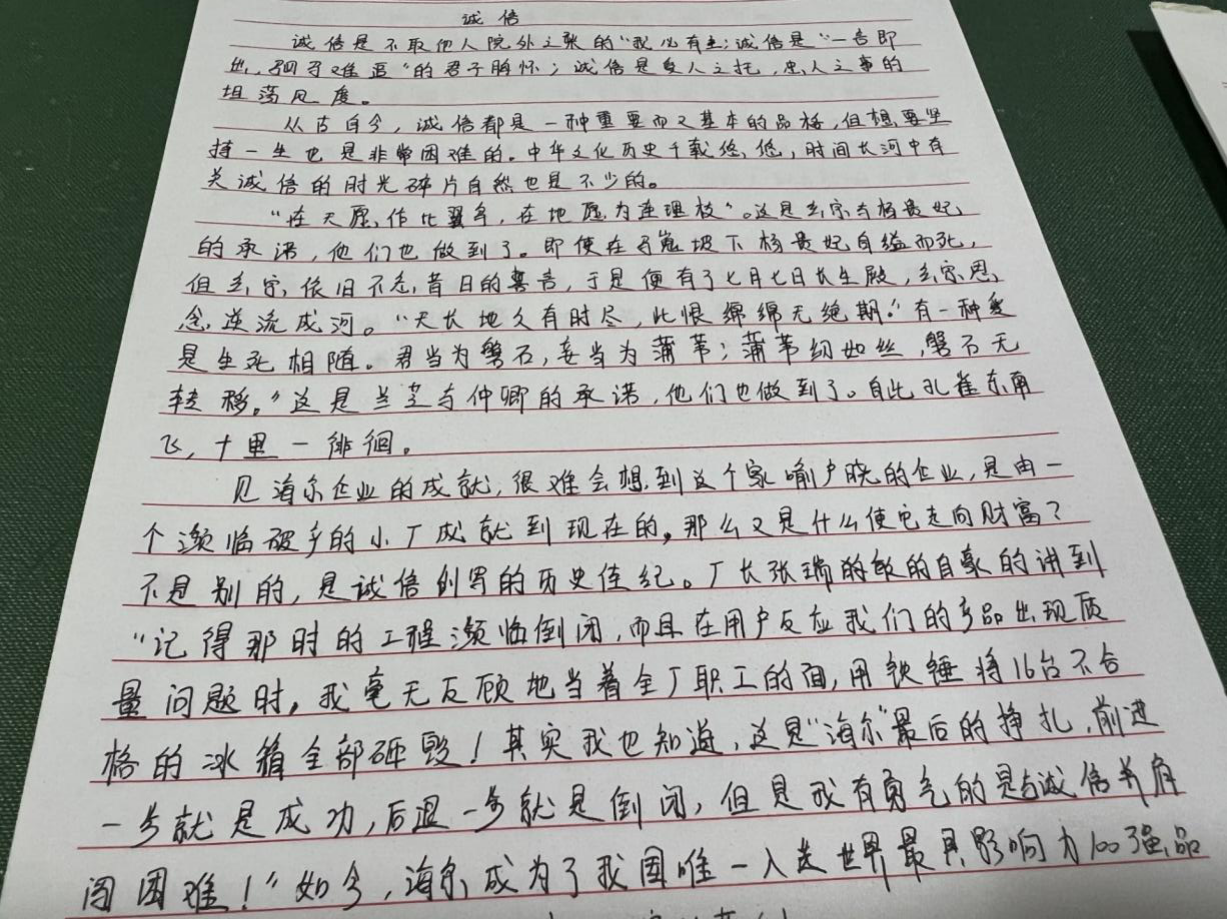 诚信
诚信是不取他人院外之张的“我必有主;诚信是“一言即
出,驷马难追”的君子胸怀;诚信是受人之托,忠人之事的
坦荡风度。
从古自今,诚信都是一种重要而又基本的品格,但想要坚
持一生也是非常困难的。中华文化历史千载悠悠,时间长河中有
关诚信的时光碎片自然也是不少的。
“在天愿作比翼鸟,在地愿为连理枝”。这是玄宗与杨贵妃
的承诺,他们也做到了。即使在马嵬坡下杨贵妃自缢而死,
但玄宗依旧不忘昔日的誓言,于是便有了七月七日长生殿,玄宗思
念逆流成河。“天长地久有时尽,此恨绵绵无绝期。”有一种爱
是生死相随。君当为磐石,妾当为蒲苇;蒲苇纫如丝,磐石无
转移。”这是兰芝与仲卿的承诺,他们也做到了。自此孔雀东南
飞,十里一徘徊。
见海尔企业的成就,很难会想到这个家喻户晓的企业,是由一
个濒临破产的小厂成就到现在的。那么又是什么使它走向财富?
不是别的,是诚信创写的历史佳纪。厂长张瑞的敏的自豪的讲到
“记得那时的工程濒临倒闭,而且在用户反应我们的产品出现质
量问题时,我毫无反顾地当着全厂职工的面,用铁锤将16台不合
格的冰箱全部砸毁!其实我也知道,这是“海尔”最后的挣扎,前进
一步就是成功,后退一步就是倒闭,但是我有勇气的是与诚信并肩
闯困难!”如今,海尔成为了我国唯一入选世界最具影响力100强品